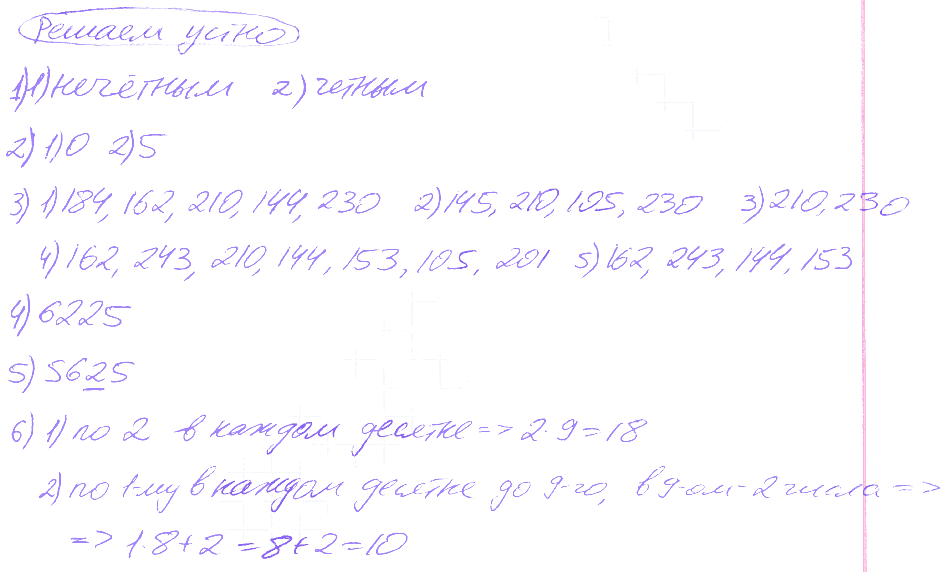 Решаем устно
1) 1) нечётным 2) четным
2) 1) 0 2) 5
3) 1) 184, 162, 210, 144, 230 2) 145, 210, 105, 230 3) 210, 230
4) 162, 243, 210, 144, 153, 105, 201 5) 162, 243, 144, 153
4) 6225
5) 5625
6) 1) по 2 в каждом десятке => 2·9=18
2) по 1-му в каждом десятке до 9-го, в 9-ом - 2 числа =>
=> 1·8+2=8+2=10